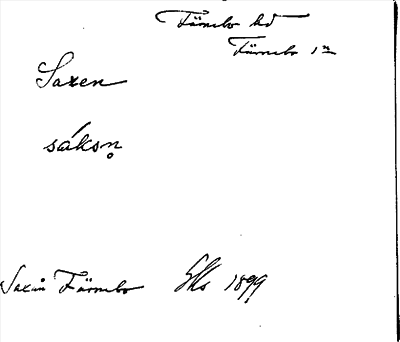 Färnebo hd
Färnebo sn
Saxen
sáksn̥
Saxån Färnebo GKs 1899